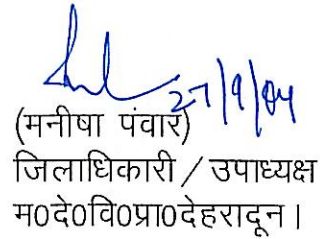 27/9/04
(मनीषा पंवार)
जिलाधिकारी / उपाध्यक्ष
म0दे0वि0प्रा0देहरादून।